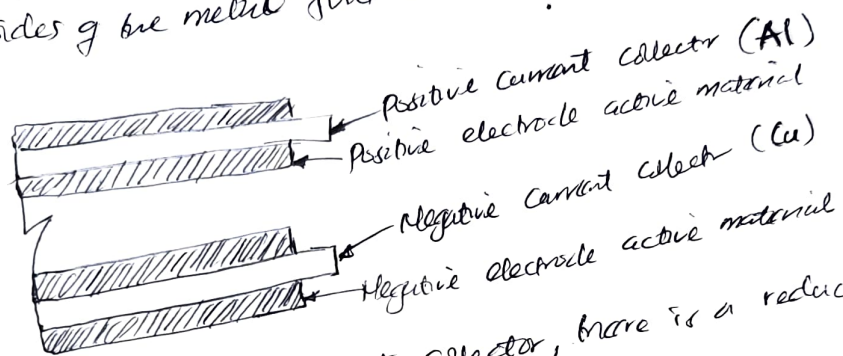 ides of the metal
Positive current collector (Al)
Positive electrode active material
Negative current collector (Cu)
Negative electrode active material
collector, there is a reduc